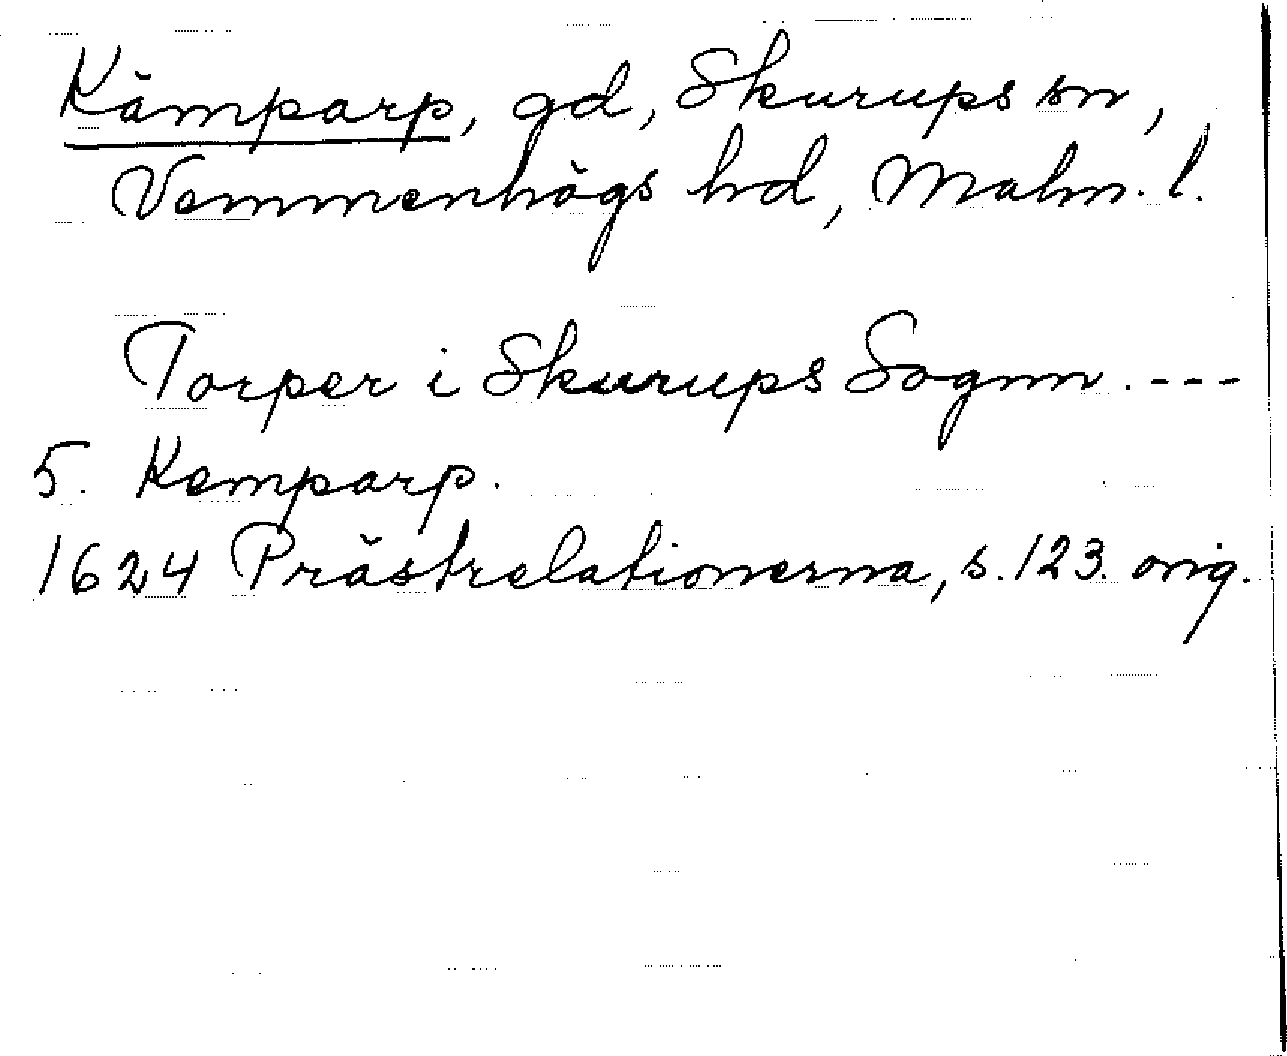 Kämparp, gd, Skurups sn,
Vemmenhögs hd, Malm. l.
Torper i Skurups Sognn. ---
5. Kemparp.
1624 Prästrelationerna, s. 123. orig.